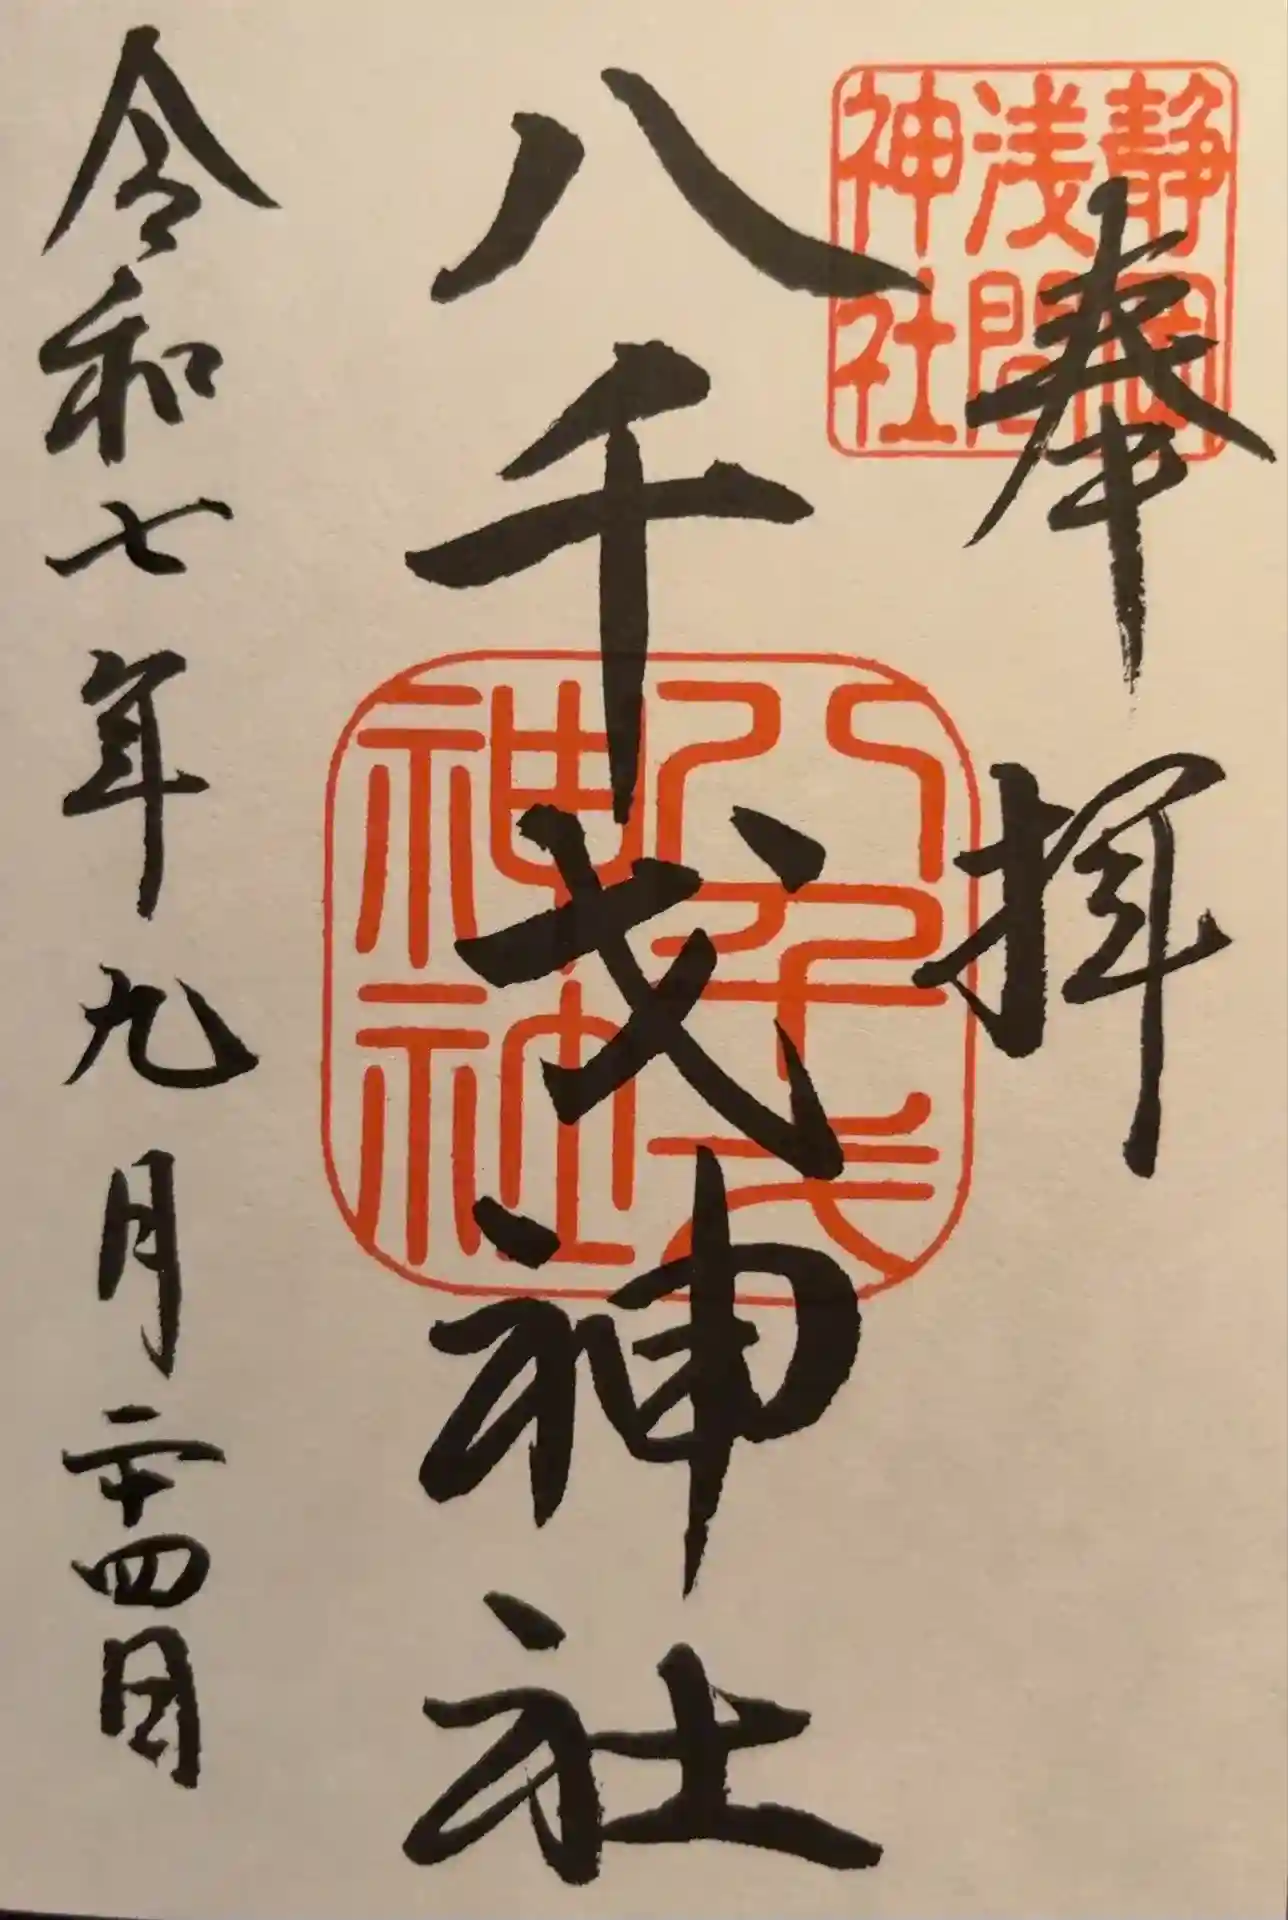 奉拝
静岡
浅間
神社
八千戈神社
八千戈
神社
令和七年九月二十四日